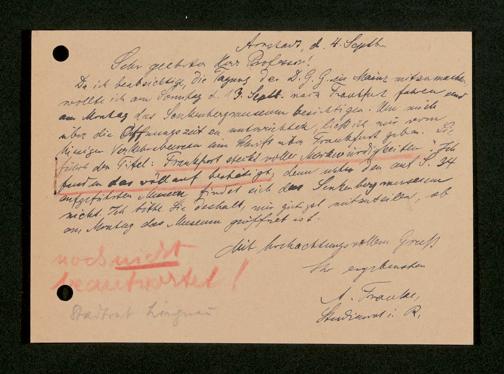 Arnstadt, d. 4. Septb.
Sehr geehrter Herr Professor!
Da ich beabsichtige, die Tagung der D.G.G. in Mainz mitzumachen,
wollte ich am Sonntag d. 13. Septb. nach Frankfurt fahren und
am Montag das Senkenbergmuseum besichtigen. Um mich
über die Öffnungszeiten zu unterrichten, ließ ich mir vom
hiesigen Verkehrsbureau ein Heft über Frankfurt geben. Es
führt den Titel: Frankfurt steckt voller Merkwürdigkeiten. Ich
fand das voll auf bestätigt, denn unter den auf S. 34
aufgeführten Museen findet sich das Senkenbergmuseum
nicht. Ich bitte Sie deshalb, mir gütigst mitzuteilen, ob
am Montag das Museum geöffnet ist.
Mit hochachtungsvollem Gruß
Ihr ergebenster
A. Franke,
Studienrat i. R.
noch nicht
beantwortet!
Stadtrat Lingnau